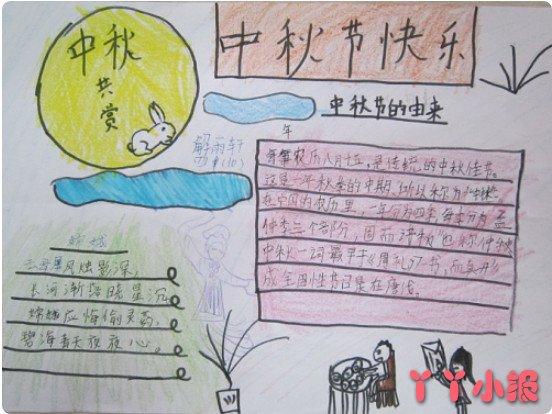 中秋
共赏
中秋节快乐
中秋节的由来
解雨轩
四(10)
年
每年农历八月十五,是传统的中秋佳节。
这是一年秋季的中期,所以称为中秋。
在中国的农历里,一年分为四季,每季分为孟
仲季三个部分,因而中秋也称仲秋
中秋一词最早于《周礼》一书,而真形
成全国性节日是在唐代。
嫦娥
云母屏风烛影深,
长河渐落晓星沉。
嫦娥应悔偷灵药,
碧海青天夜夜心。
丫丫小报